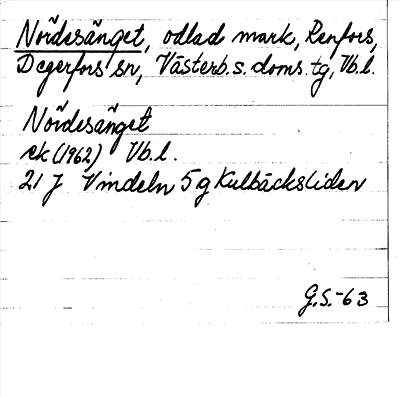 Nördesänget, odlad mark, Renfors,
Degerfors sn, Västerb. s. doms. tg, Vb.l.
Nördesänget
ek (1962) Vb.l.
21 J Vindeln 5 g Kulbäcksliden
G.S.-63